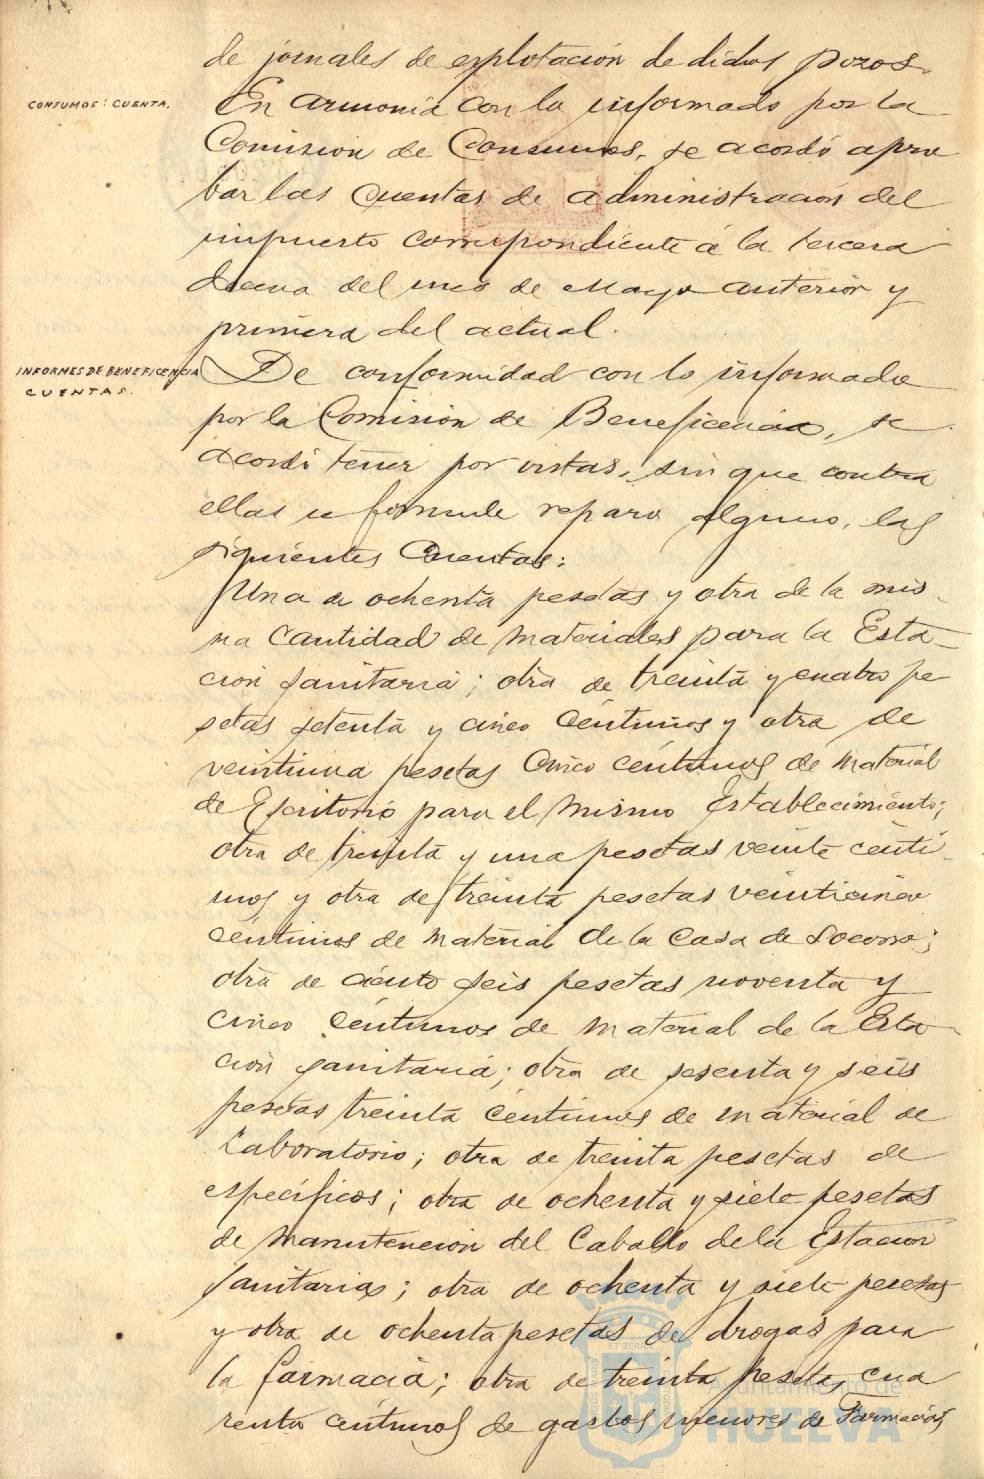 de jornales de explotación de dichos pozos.
CONSUMOS: CUENTA.
En armonia con lo informado por la
Comision de Consumos, se acordó apro
bar las cuentas de administración del
impuesto correspondiente á la tercera
decena del mes de Mayo anterior y
primera del actual.
INFORMES DE BENEFICENCIA
CUENTAS.
De conformidad con lo informado
por la Comisión de Beneficencia, se
acordó tener por vistas, sin que contra
ellas se formule reparo alguno, las
siguientes Cuentas:
Una de ochenta pesetas y otra de la mis-
ma Cantidad de materiales para la Esta-
ción Sanitaria; otra de treinta y cuatro pe
setas setenta y cinco Céntimos y otra de
veintiuna pesetas Cinco céntimos de Material
de Escritorio para el mismo Establecimiento;
otra de treinta y una pesetas veinte cénti-
mos y otra de treinta pesetas veinticinco
céntimos de material de la Casa de Socorro;
otra de ciento seis pesetas noventa y
cinco Céntimos de material de la Esta-
ción Sanitaria; otra de sesenta y seis
pesetas treinta céntimos de material de
Laboratorio; otra de treinta pesetas de
específicos; otra de ochenta y siete pesetas
de manutención del Caballo de la Estación
Sanitaria; otra de ochenta y siete pesetas
y otra de ochenta pesetas de drogas para
la farmacia; otra de treinta pesetas cua
renta céntimos de gastos menores de Farmacias
Ayuntamiento de
HUELVA